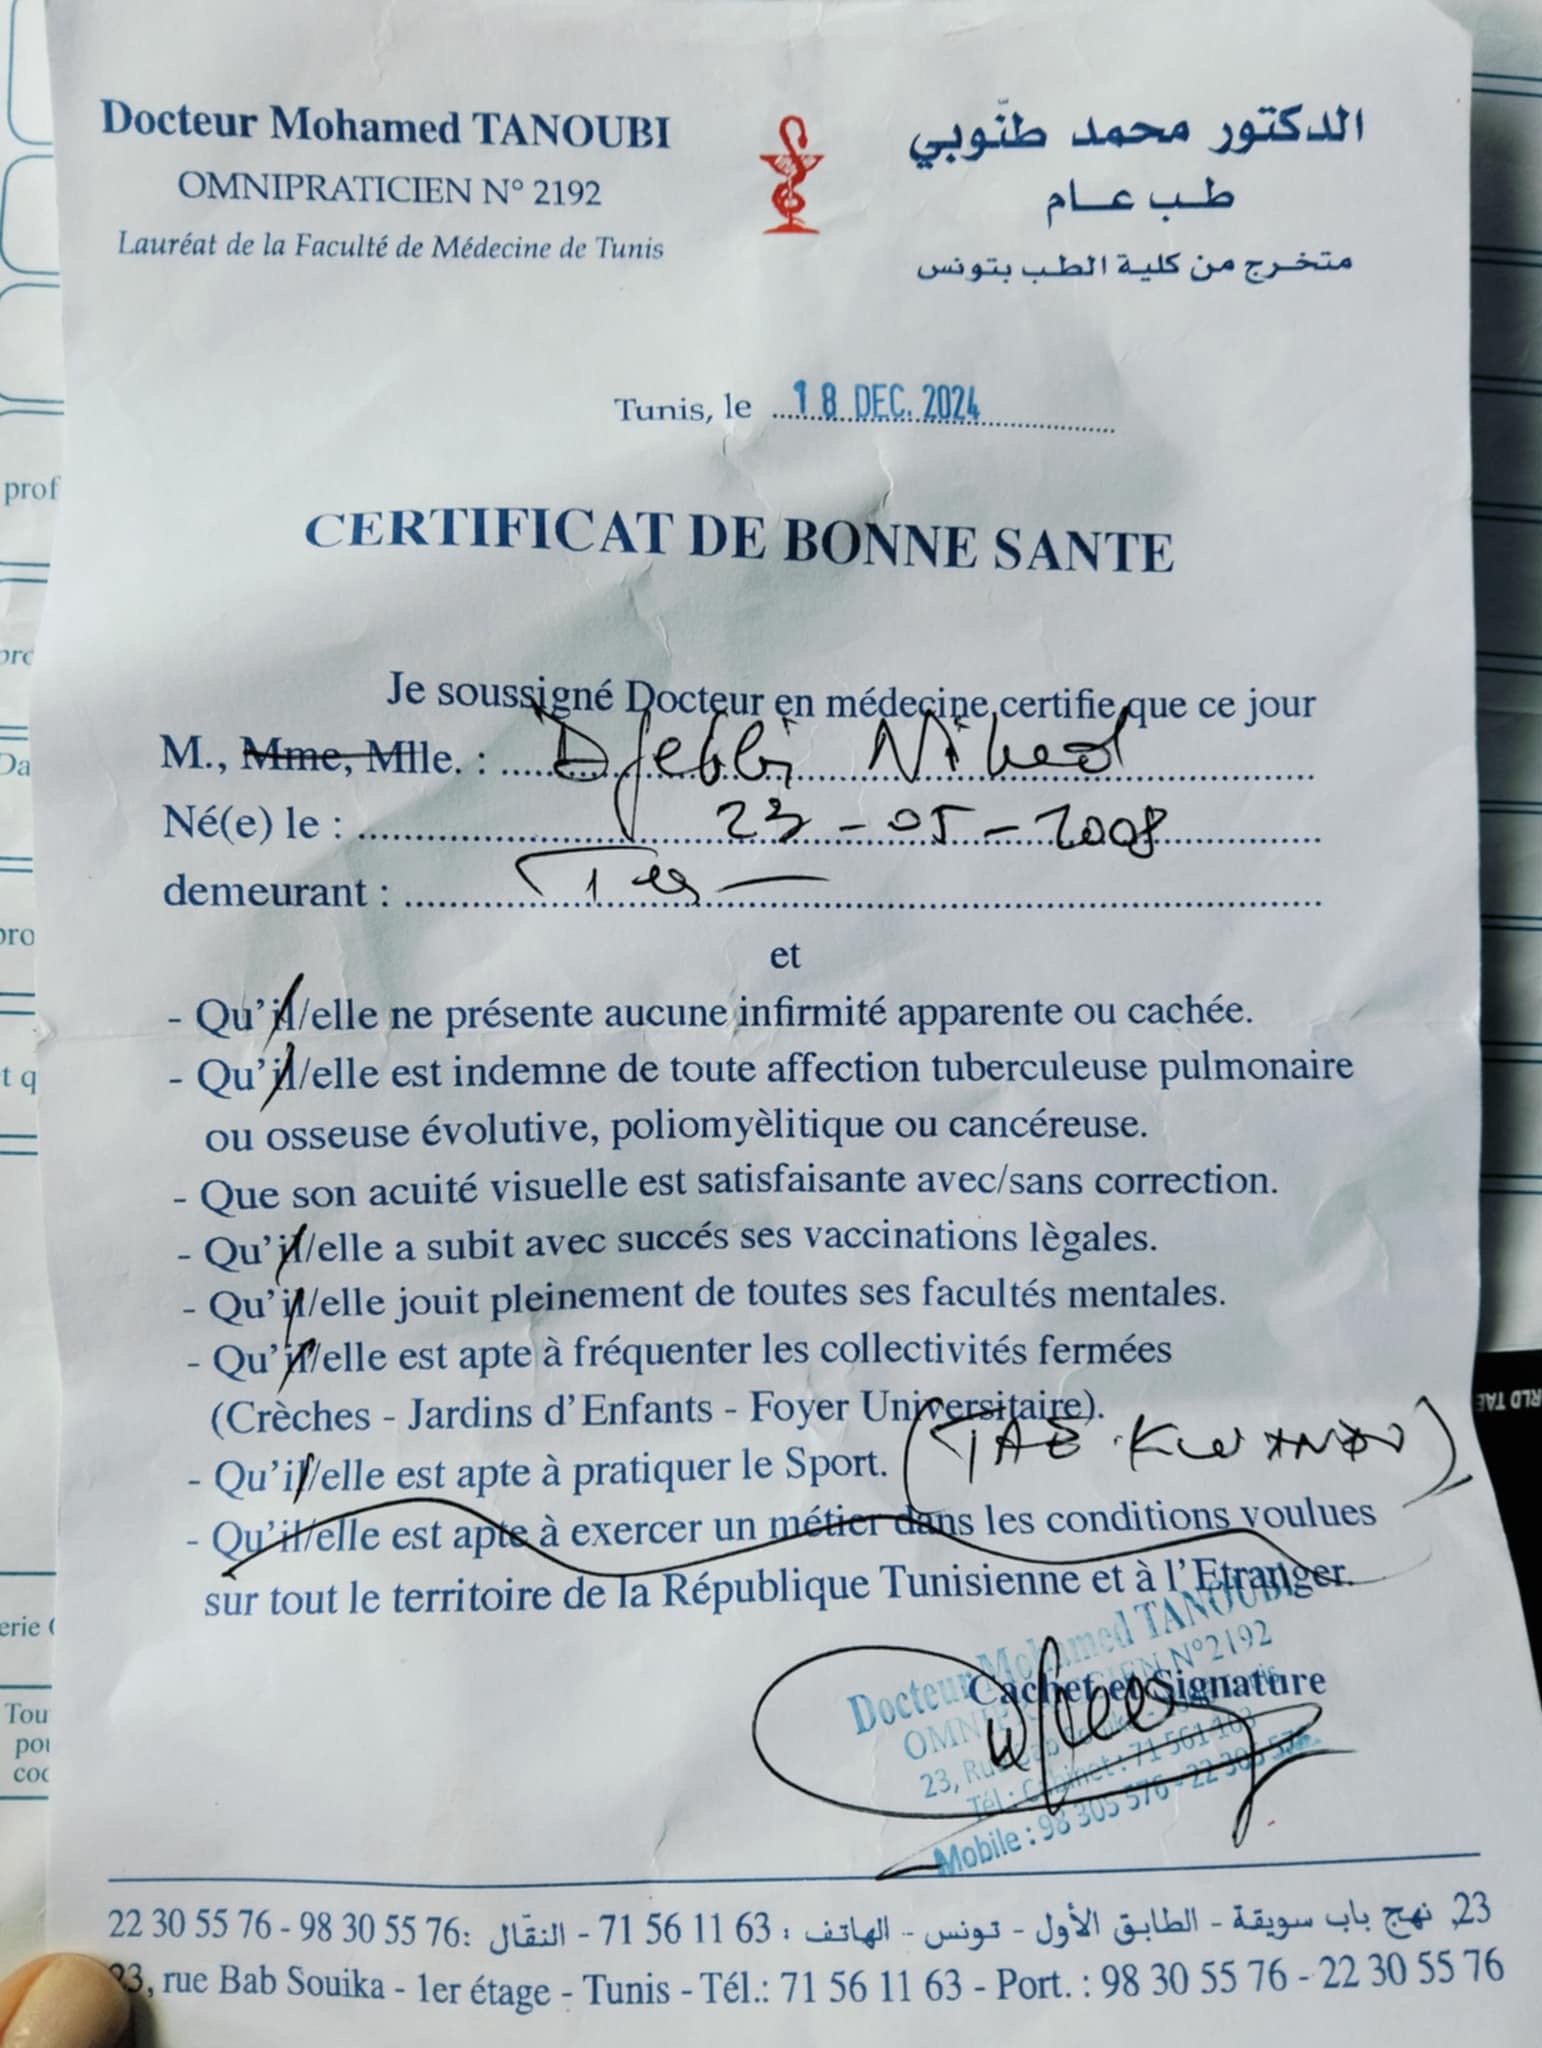 Docteur Mohamed TANOUBI
OMNIPRATICIEN N° 2192
Lauréat de la Faculté de Médecine de Tunis
الدكتور محمد طنّوبي
طب عام
متخرج من كلية الطب بتونس
Tunis, le 18 DEC. 2024
CERTIFICAT DE BONNE SANTE
Je soussigné Docteur en médecine certifie que ce jour
M., Mme, Mlle. : Djebbi Nihed
Né(e) le : 23-05-2008
demeurant :
et
- Qu'il/elle ne présente aucune infirmité apparente ou cachée.
- Qu'il/elle est indemne de toute affection tuberculeuse pulmonaire
ou osseuse évolutive, poliomyèlitique ou cancéreuse.
- Que son acuité visuelle est satisfaisante avec/sans correction.
- Qu'il/elle a subit avec succés ses vaccinations lègales.
- Qu'il/elle jouit pleinement de toutes ses facultés mentales.
- Qu'il/elle est apte à fréquenter les collectivités fermées
(Crèches - Jardins d'Enfants - Foyer Universitaire).
- Qu'il/elle est apte à pratiquer le Sport. (TAE.KWANDO)
- Qu'il/elle est apte à exercer un métier dans les conditions voulues
sur tout le territoire de la République Tunisienne et à l'Etranger.
Cachet et Signature
Docteur Mohamed TANOUBI
OMNIPRATICIEN N°2192
23, Rue Bab Souika
Tél : Cabinet : 71 561 163
Mobile : 98 305 576 - 22 305 576
23, نهج باب سويقة - الطابق الأول - تونس - الهاتف : 71 56 11 63 - النقّال :98 30 55 76 - 22 30 55 76
23, rue Bab Souika - 1er étage - Tunis - Tél.: 71 56 11 63 - Port. : 98 30 55 76 - 22 30 55 76
prof
pro
Da
pro
t q
erie
Tou
pou
coc